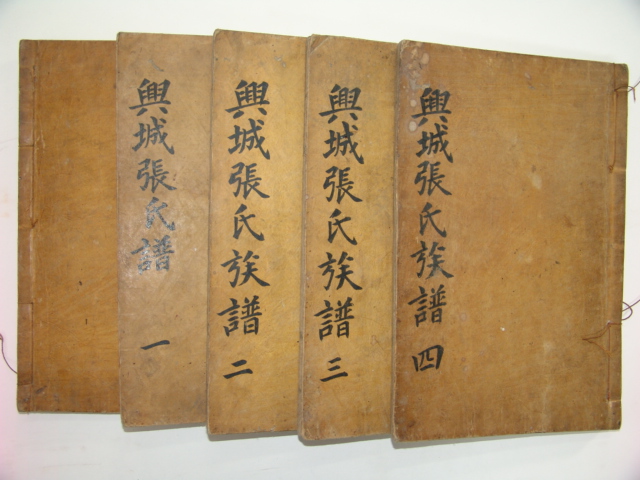 興城張氏譜 一
興城張氏族譜 二
興城張氏族譜 三
興城張氏族譜 四